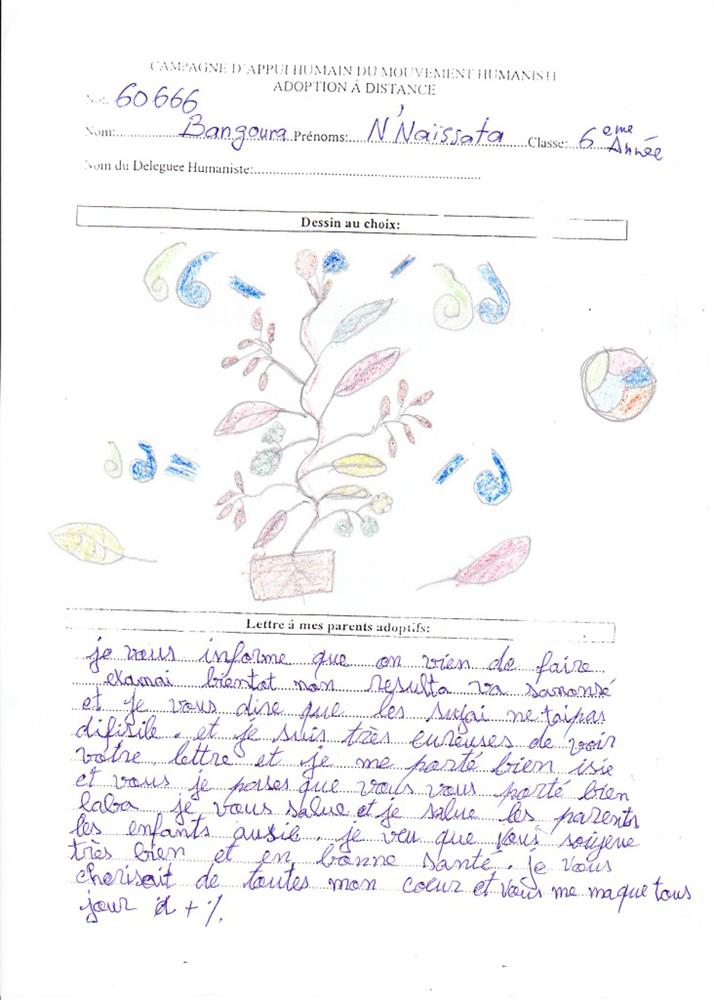 CAMPAGNE D'APPUI HUMAIN DU MOUVEMENT HUMANISTE
ADOPTION À DISTANCE
No: 60666
Nom: Bangoura Prénoms: N'Naïssata Classe: 6eme Année
Nom du Deleguee Humaniste:
Dessin au choix:
Lettre á mes parents adoptifs:
je vous informe que on vien de faire
examai bientot mon resulta va sanonsé
et je vous dire que les sujai ne taipas
difisile. et je suis très eureuses de voir
votre lettre et je me porté bien isie
et vous je penses que vous vous porté bien
laba je vous salue et je salue les parents
les enfants ausie. je veu que vous soigene
très bien et en bonne santé. je vous
cherisait de toutes mon coeur et vous me maque tous
jour d + %.